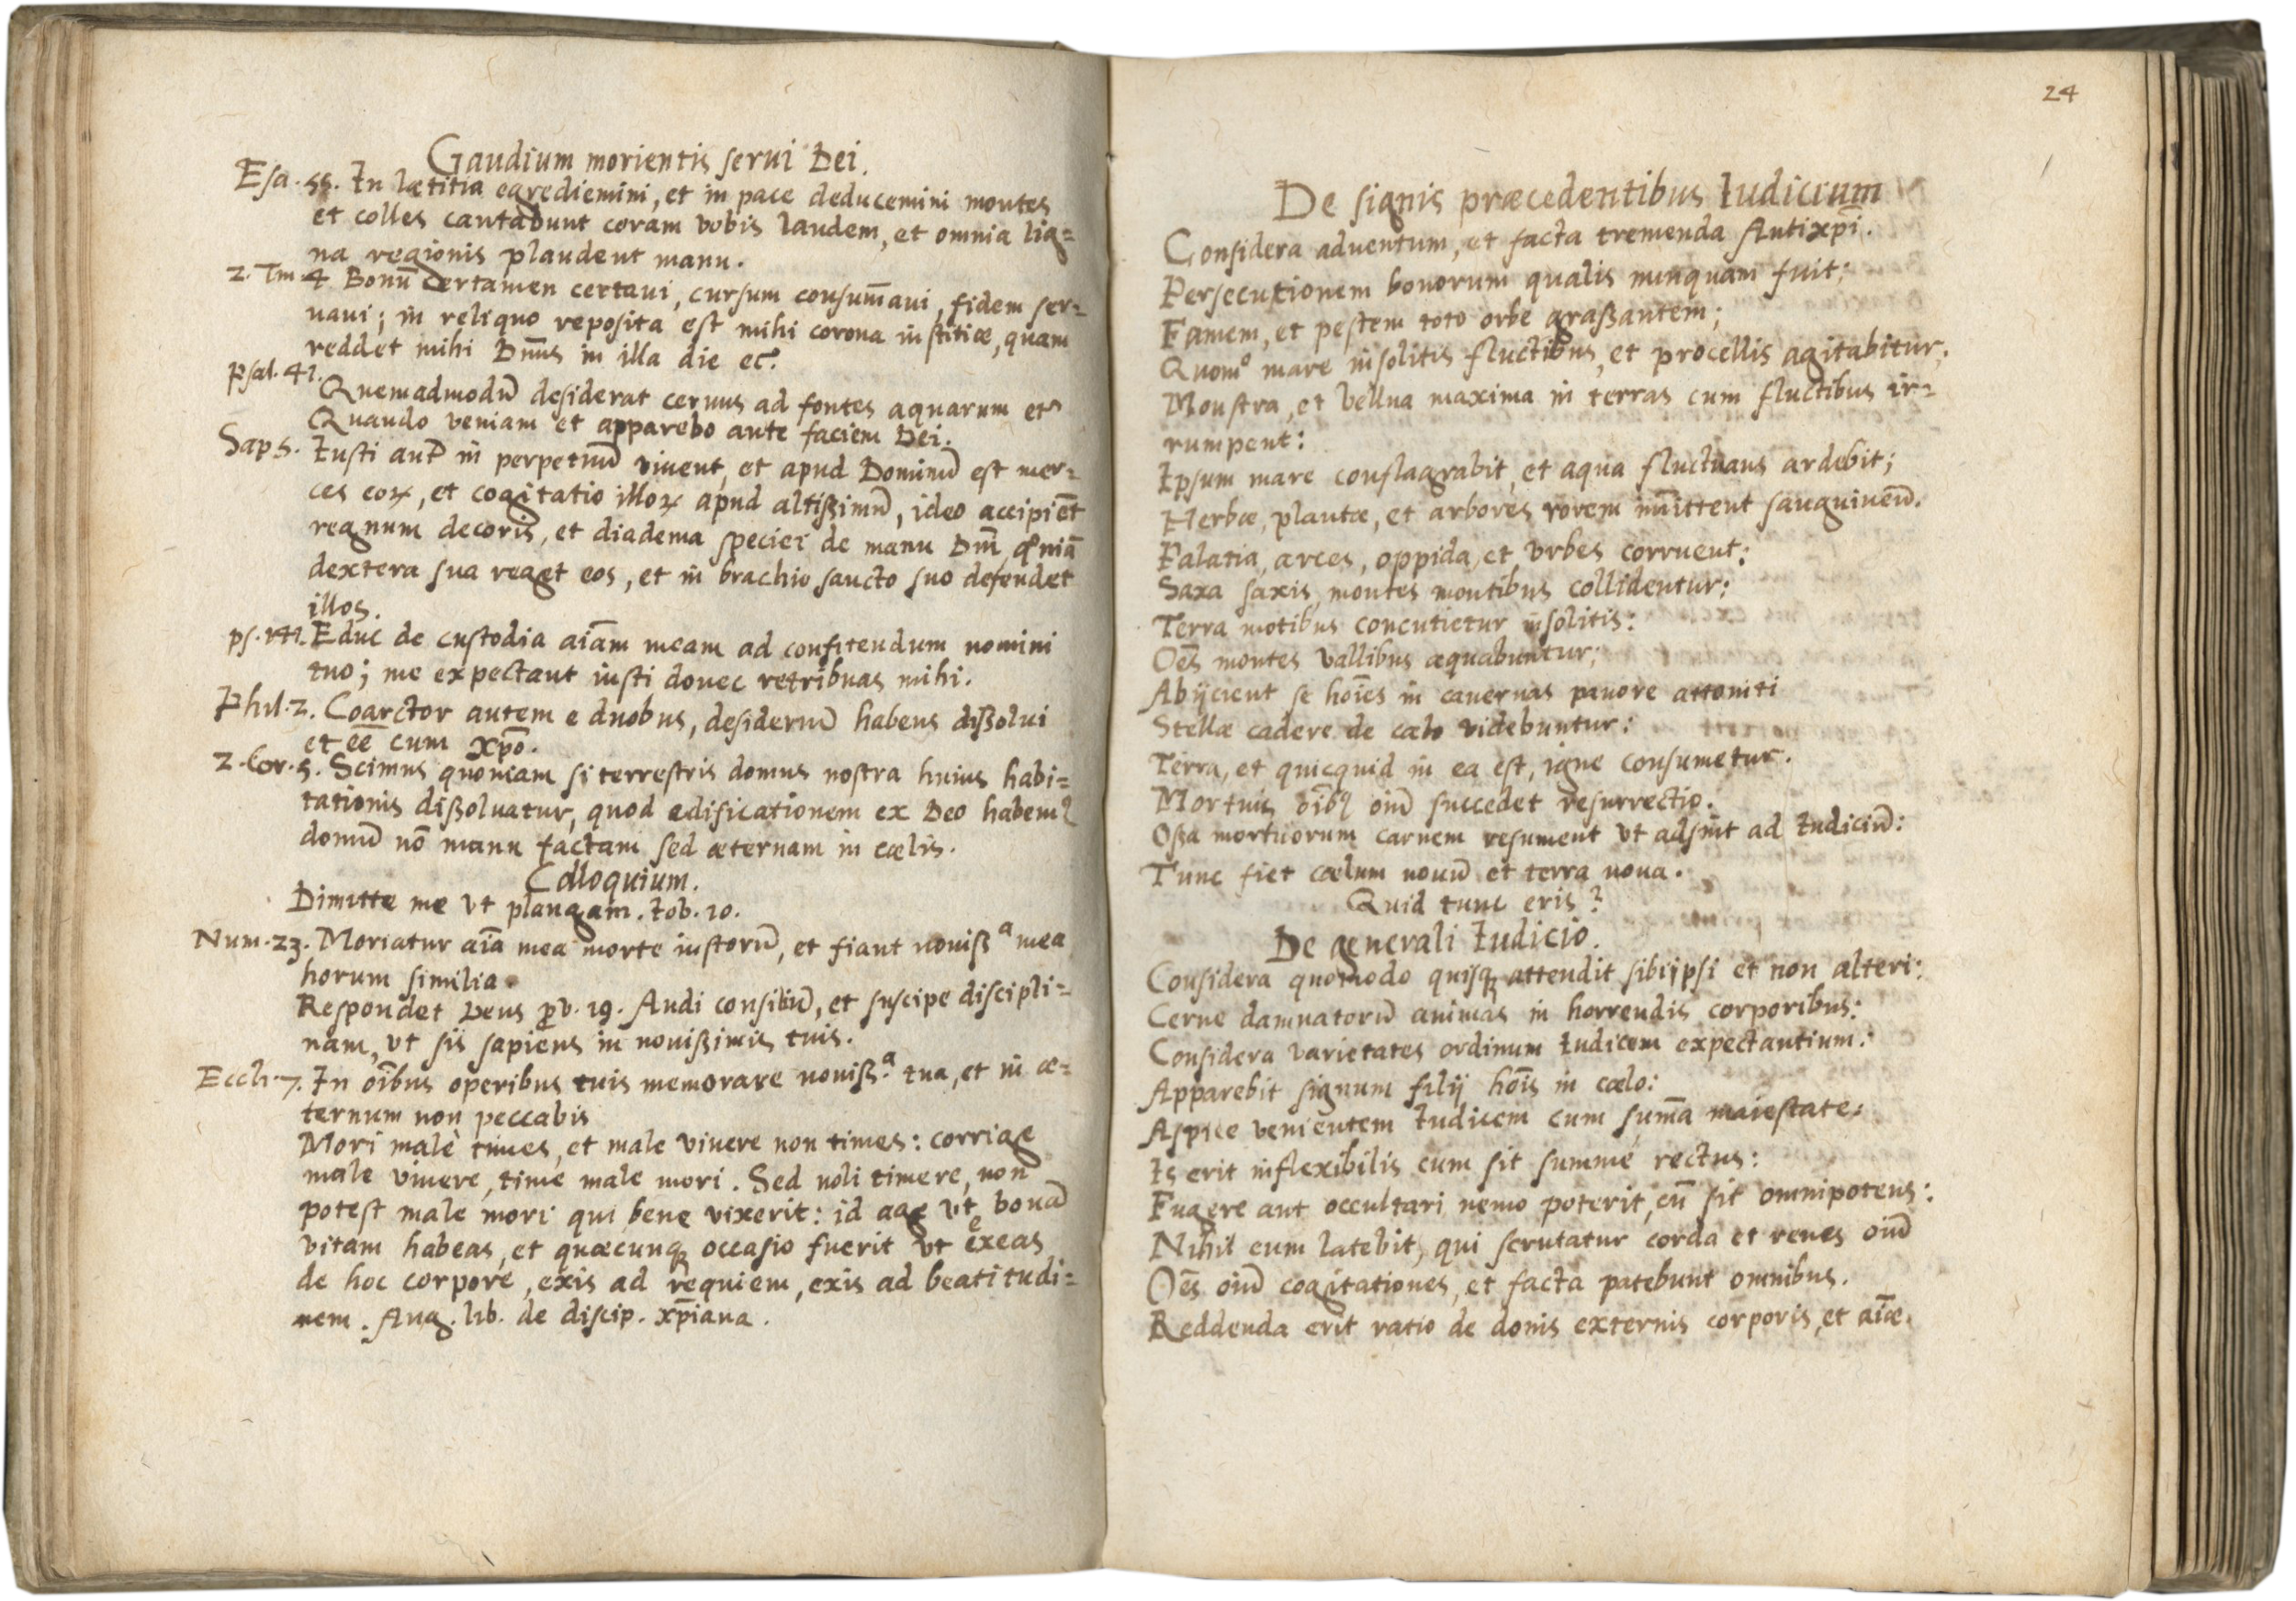 Gaudium morientis serui Dei.
Esa. 55. In lætitia egrediemini, et in pace deducemini montes
et colles cantabunt coram vobis laudem, et omnia lig=
na regionis plaudent manu.
2. Tm 4 Bonū certamen certaui, cursum consum̄aui, fidem ser=
uaui; in reliquo reposita est mihi corona iustitiæ, quam
reddet mihi Dn̄us in illa die ec̃.
Psal. 41. Quemadmodū desiderat ceruus ad fontes aquarum etc
Quando veniam et apparebo ante faciem Dei.
Sap 5. Iusti aut in perpetuū viuent, et apud Dominū est mer=
ces eoꝝ, et cogitatio illoꝝ apud altißimū, ideo accipiēt
regnum decoris, et diadema speciei de manu Dn̄i qm̄niā
dextera sua reget eos, et in brachio sancto suo defendet
illos.
ps. 141. Educ de custodia aīam meam ad confitendum nomini
tuo; me expectant iusti donec retribuas mihi.
Phil. 2. Coarctor autem e duobus, desideriū habens dißolui
et eē cum xp̄o.
2. Cor. 5. Scimus quoniam si terrestris domus nostra huius habi=
tationis dißoluatur, quod edificationem ex Deo habemꝰ
domū nō manu factam sed æternam in cælis.
Colloquium.
Dimitte me vt plangam. Iob. 10.
Num. 23. Moriatur aīa mea morte iustorū, et fiant nouiß ᵃ mea
horum similia.
Respondet Deus ꝓv. 19. Audi consiliū, et suscipe discipli=
nam, vt sis sapiens in nouißimis tuis.
Eccli. 7. In oībus operibus tuis memorare nouiß.ᵃ tua, et in æ=
ternum non peccabis
Mori malè times, et male viuere non times: corrige
male viuere, time male mori. Sed noli timere, non
potest male mori qui bene vixerit: id age vt bonā
vitam habeas, et quæcunqꝫ occasio fuerit vt exeas
de hoc corpore, exis ad requiem, exis ad beatitudi=
nem. Aug. lib. de discip. xp̄iana.
24
De signis præcedentibus Iudicium
Considera aduentum, et facta tremenda Antixp̄i.
Persecutionem bonorum qualis nunquam fuit;
Famem, et pestem toto orbe graßantem;
Quomº mare insolitis fluctibus, et procellis agitabitur;
Monstra, et bellua maxima in terras cum fluctibus ir=
rumpent:
Ipsum mare conflagrabit, et aqua fluctuans ardebit;
Herbæ, plantæ, et arbores rorem im̄ittent sanguineū.
Palatia, arces, oppida, et vrbes corruent:
Saxa saxis, montes montibus collidentur:
Terra motibus concutietur insolitis:
Oēs montes vallibus æquabuntur;
Abijcient se hoīes in cauernas pauore attoniti
Stellæ cadere de cælo videbuntur:
Terra, et quicquid in ea est, igne consumetur.
Mortuis oībꝰ oiū succedet resurrectio.
Oßa mortuorum carnem resument vt adsint ad Iudiciū:
Tunc fiet cælum nouū et terra noua.
Quid tunc eris?
De generali Iudicio.
Considera quomodo quisqꝫ attendit sibiipsi et non alteri:
Cerne damnatorū animas in horrendis corporibus:
Considera varietates ordinum Iudicem expectantium:
Apparebit signum filij hoīs in cælo:
Aspice venientem Iudicem cum sum̄a maiestate:
Is erit inflexibilis cum sit summè rectus:
Fugere aut occultari nemo poterit, cū sit omnipotens:
Nihil eum latebit, qui scrutatur corda et renes oiū
Oēs oiū cogitationes, et facta patebunt omnibus.
Reddenda erit ratio de donis externis corporis, et aīæ.